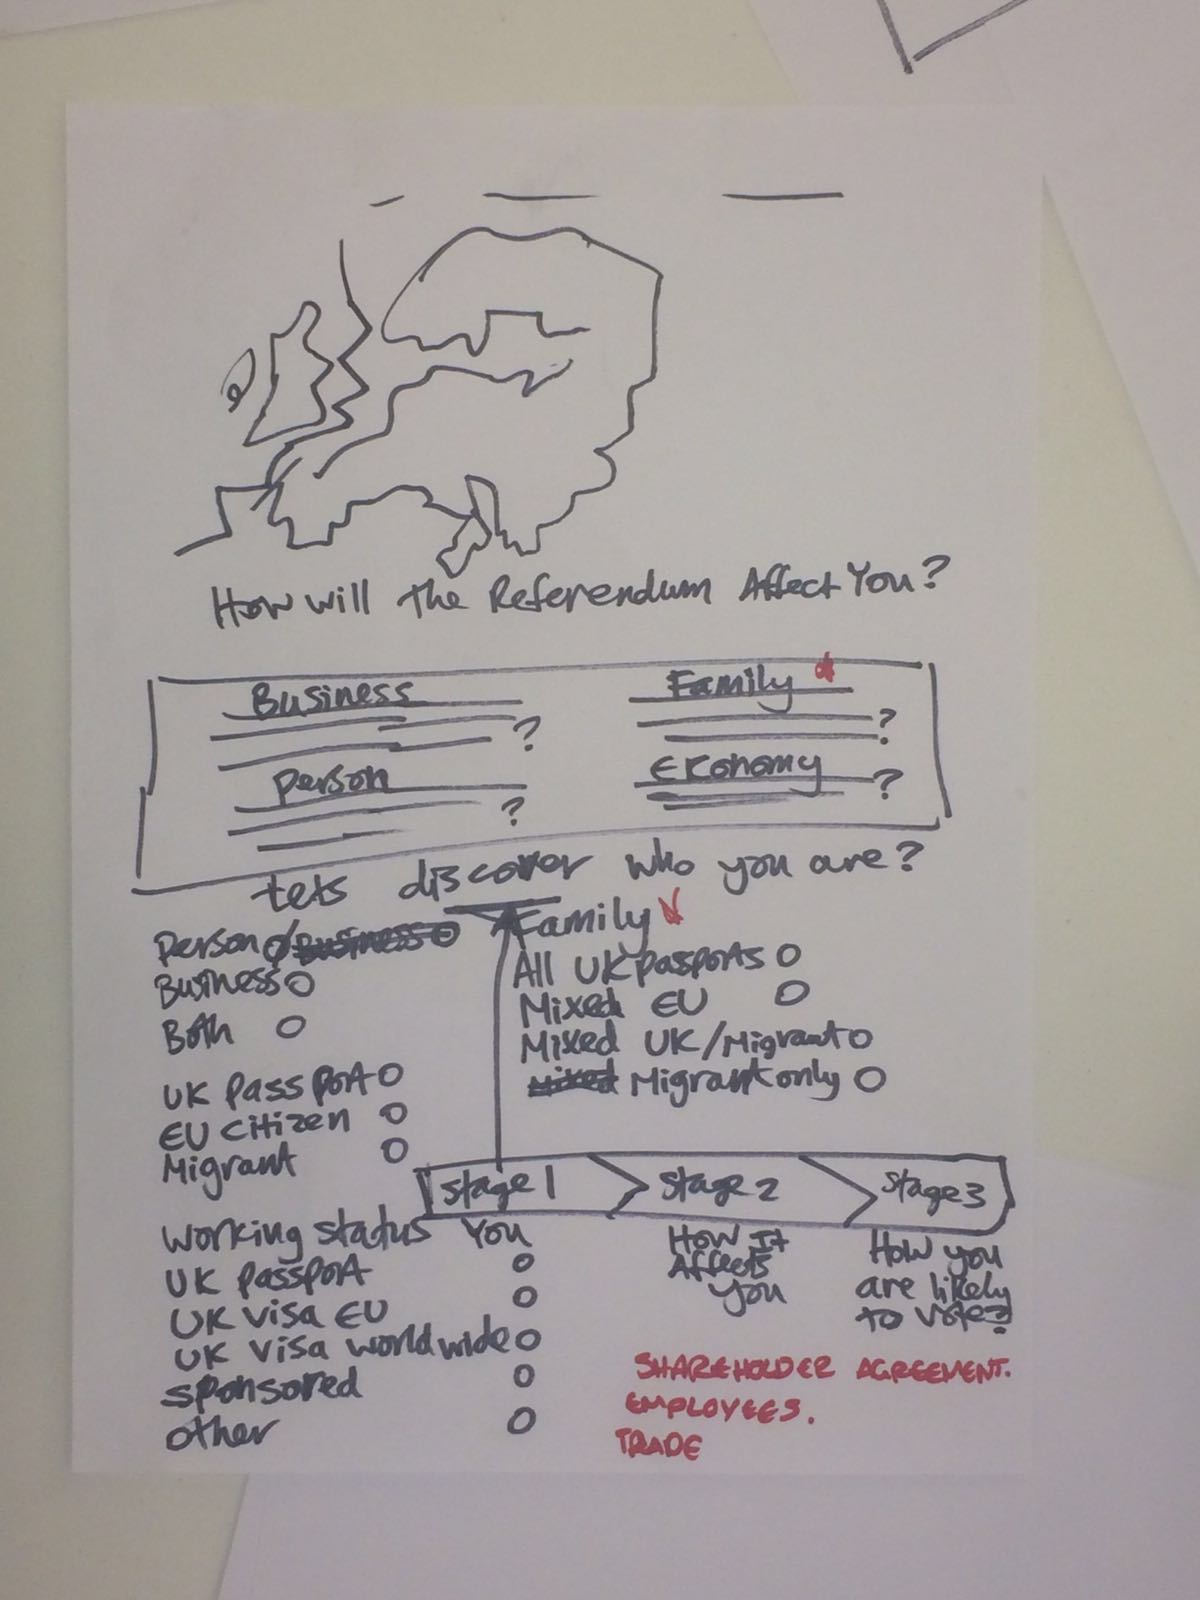 How will The Referendum Affect You?
Business
Family
?
?
person
Ekonomy
?
?
tets discover who you are?
Person / Business
Business
Both
UK passport
EU citizen
Migrant
Family
All UK passports
Mixed EU
Mixed UK/Migrant
Mixed Migrant only
stage 1
stage 2
stage 3
You
How It
Affects
You
How you
are likely
to vote?
working status
UK passport
UK visa EU
UK visa worldwide
sponsored
other
SHAREHOLDER AGREEMENT.
EMPLOYEES.
TRADE